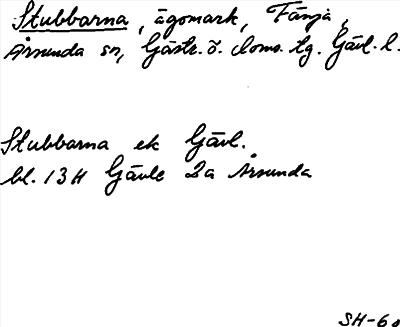 Stubbarna, ägomark, Fänja,
Årsunda sn, Gästr. ö. doms. tg. Gävl. l.
Stubbarna ek Gävl.
bl. 13H Gävle 2a Årsunda
SH-60